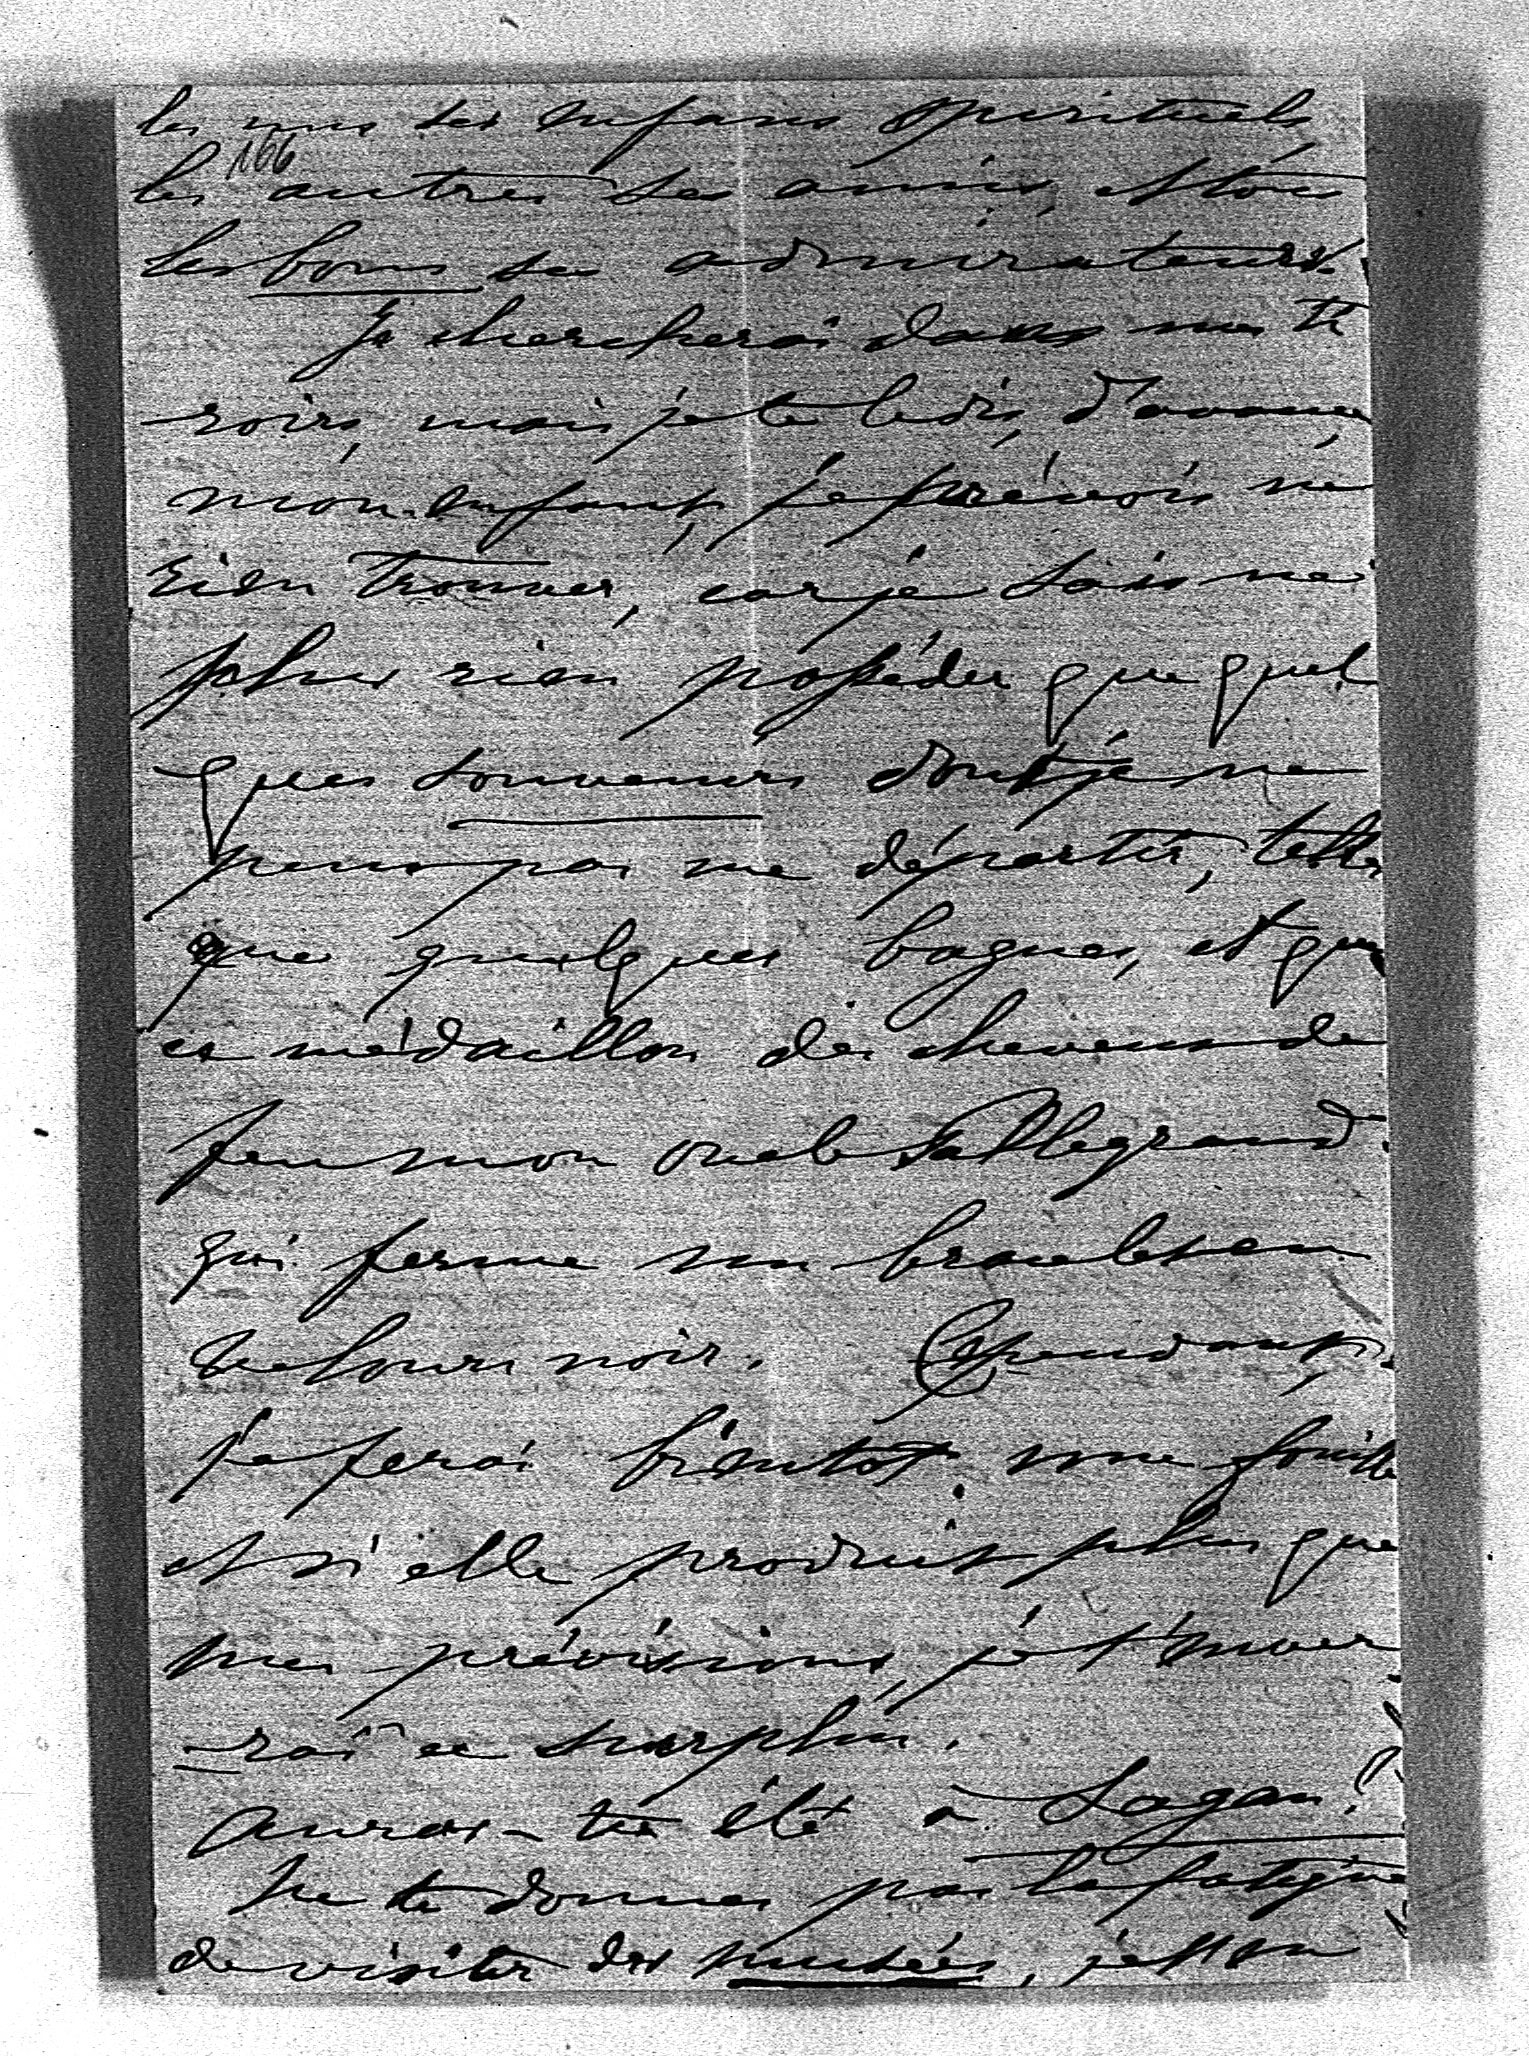 les uns ses enfans spirituels
166
les autres ses amis, et tous
les bons ses admirateurs.
Je chercherai dans mes ti
roirs, mais je te le dis, d'avance,
mon enfant, je prévois ne
rien trouver, car je sais ne
plus rien posséder que quel
ques souvenirs dont je ne
peux pas me départir, telles
que quelques bagues, et que
ce médaillon de cheveux de
feu mon oncle
qui ferme un bracelet en
velours noir. Cependant,
je ferai bientot une fouille
et si elle produit plus que
mes prévisions, je t'enver
rai ce surplus.
Auras-tu été à Sagan?
Ne te donnes pas la fatigue
de visiter des musées,